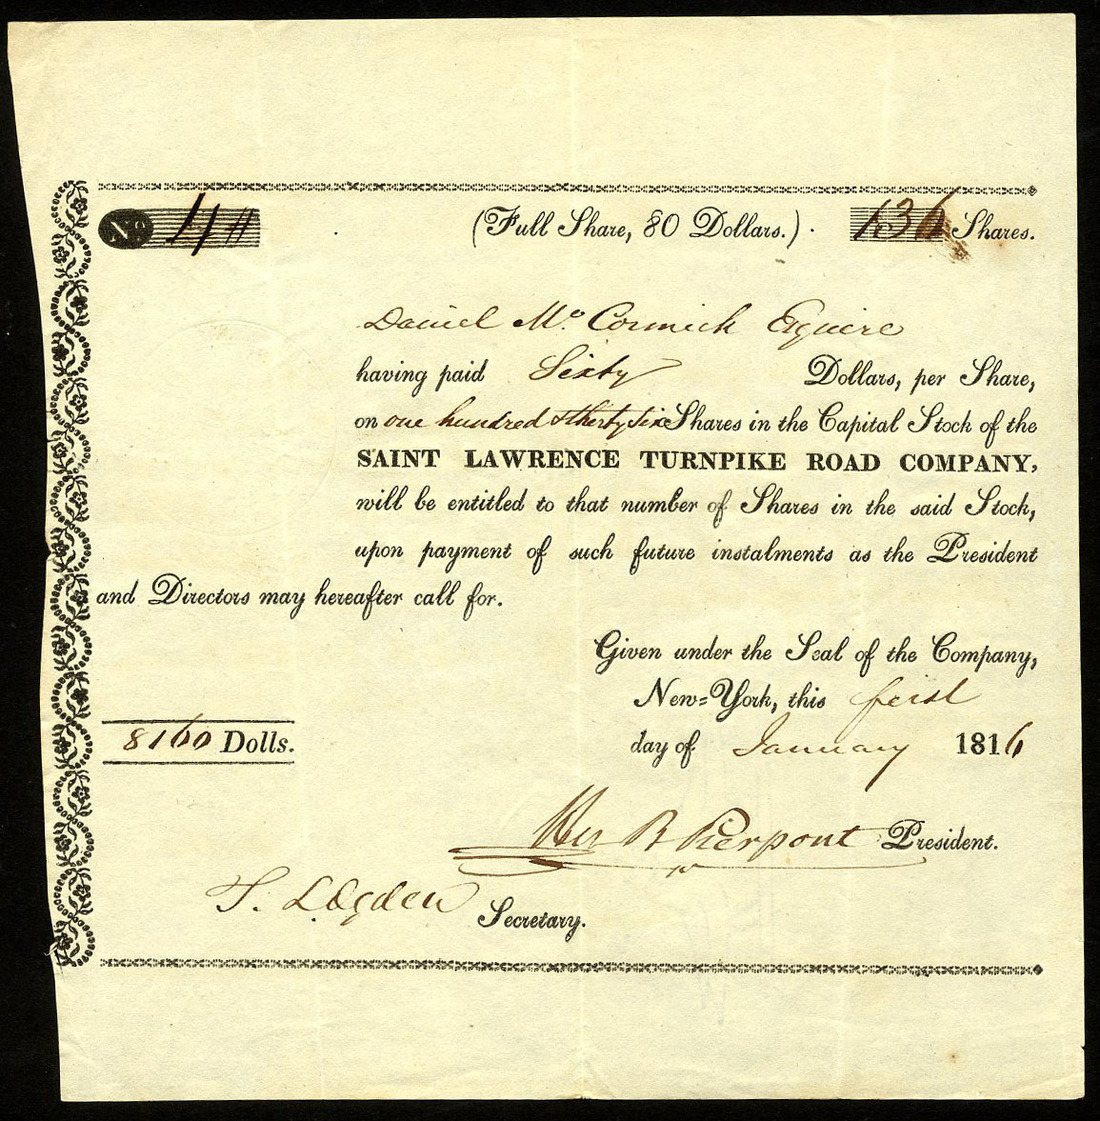 No 4 (Full Share, 80 Dollars.) 136 Shares.
Daniel Mc Cormick Esquire
having paid Sixty Dollars, per Share,
on one hundred & thirty six Shares in the Capital Stock of the
SAINT LAWRENCE TURNPIKE ROAD COMPANY,
will be entitled to that number of Shares in the said Stock,
upon payment of such future instalments as the President
and Directors may hereafter call for.
Given under the Seal of the Company,
New=York, this first
8160 Dolls. day of January 1816
B Pierpont President.
T. L. Ogden Secretary.